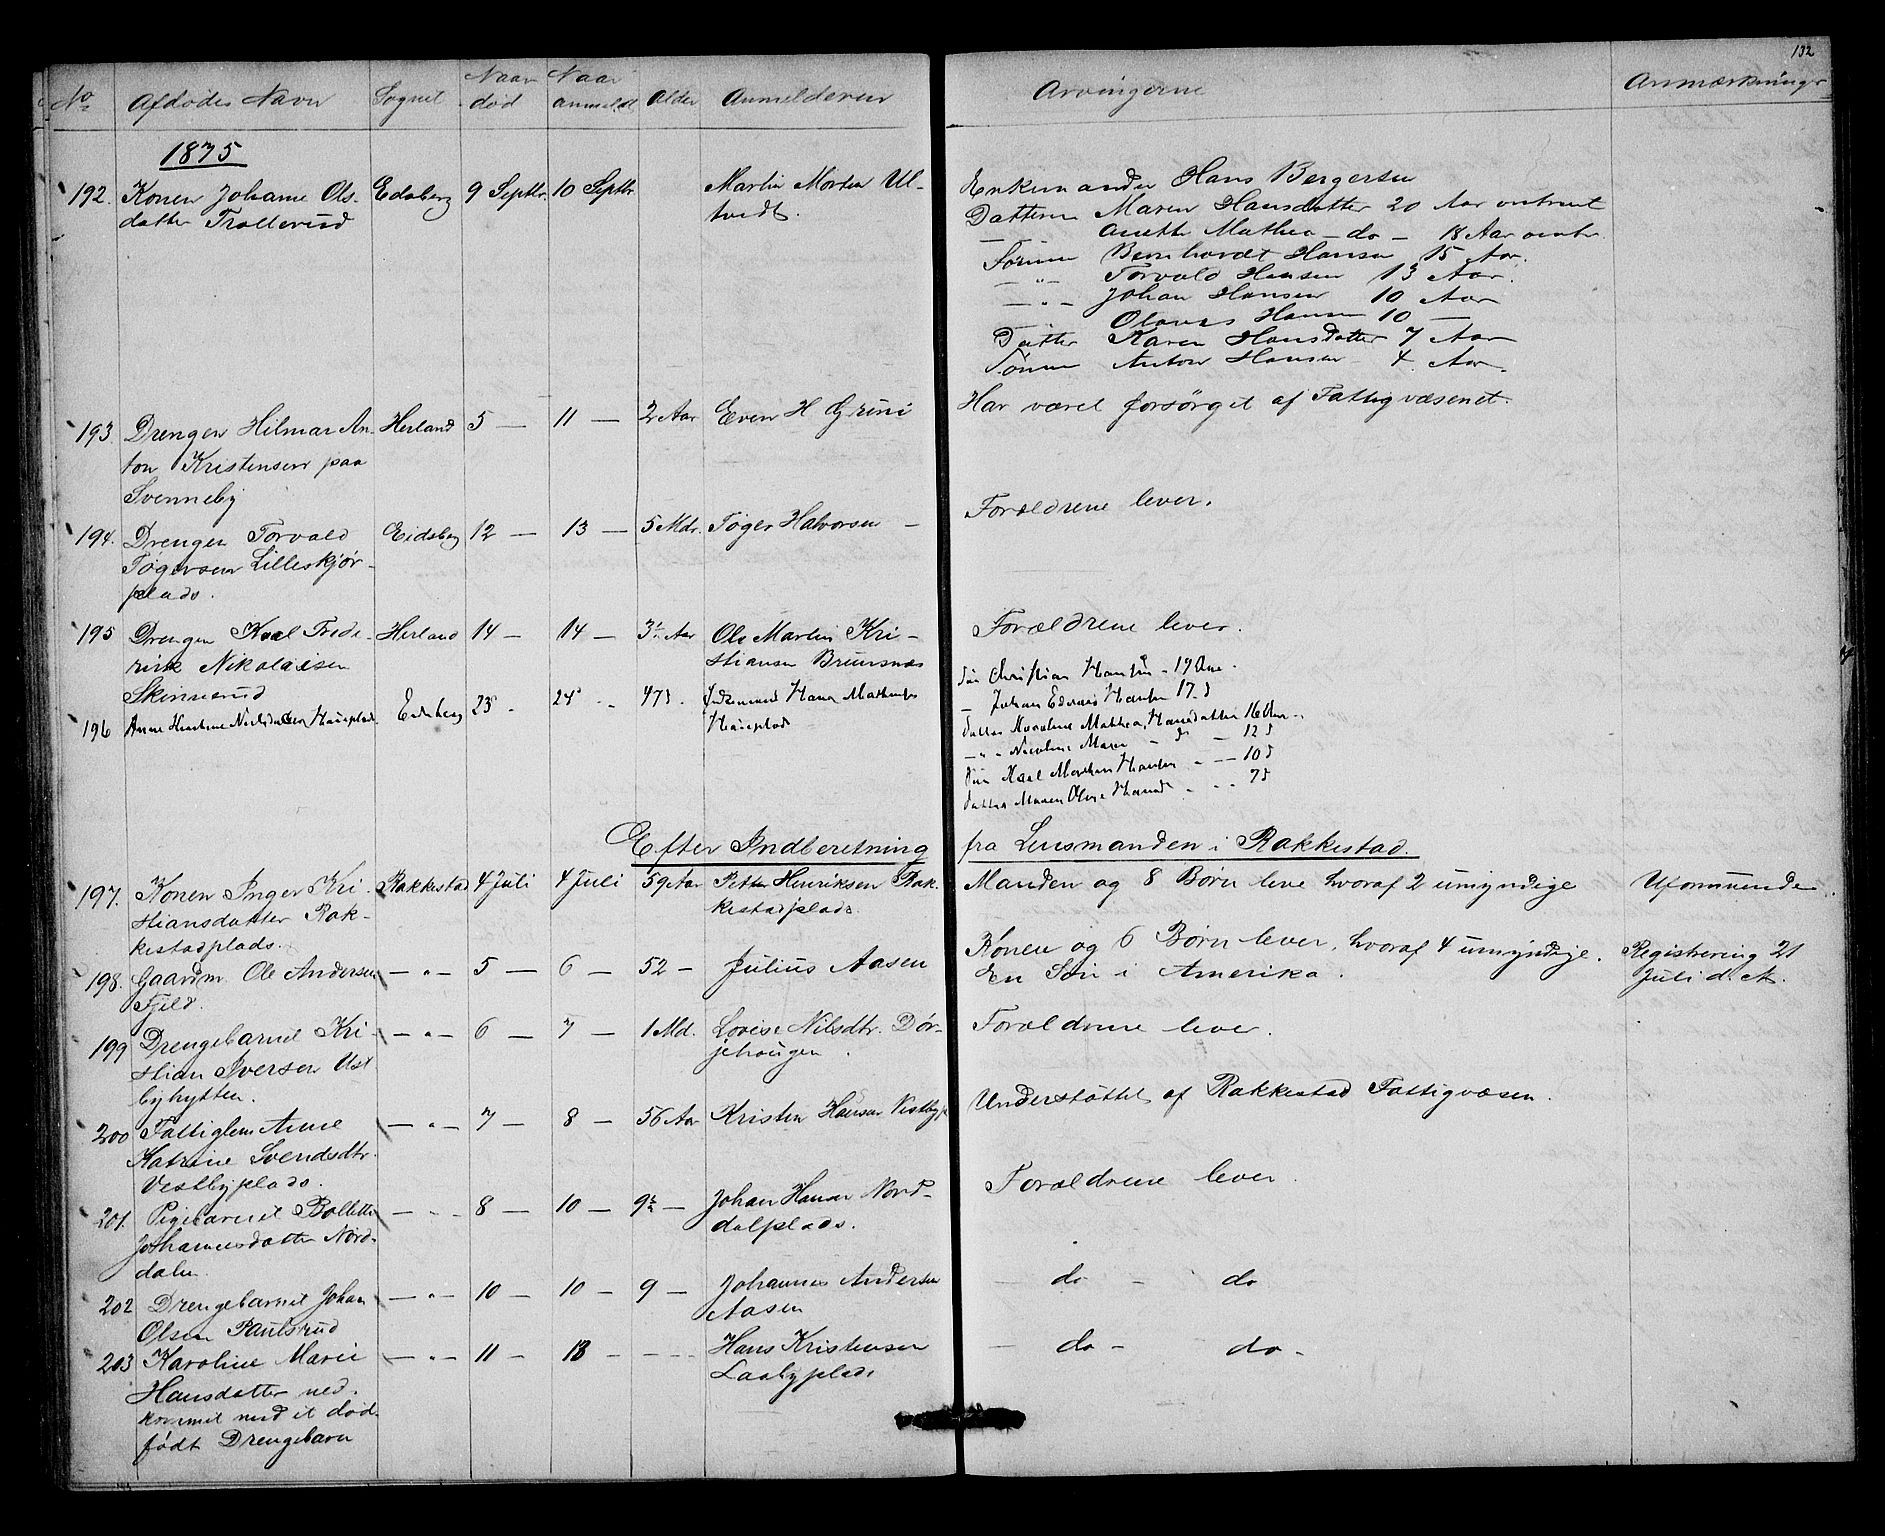 132
No Afdødes Navn Sognet Naar død Naar anmeldt Alder Anmelderen Arvingerne Anmærkninger
1875
192. Konen Johanne Ols- Edsberg 9 Septbr. 10 Septbr. Martin Morten Ul-
datter Trollerud tvedt.
Enkemanden Hans Bergersen
Datteren Maren Hansdatter 20 Aar omtrent
— Anette Mathea — do — 18 Aar omtr.
Sønnen Bernhardt Hansen 15 Aar.
— " — Torvald Hansen 13 Aar.
— " — Johan Hansen 10 Aar
Olaves Hansen 10 —
Datter Karen Hansdatter 7 Aar
Sønnen Anton Hansen 4 Aar.
193. Drengen Hilmar An- Herland 5 — 11 — 2 Aar Even H Grini Har været forsørget af Fattigvæsenet.
ton Kristensen paa
Svenneby
194. Drengen Torvald Eidsberg 12 — 13 — 5 Mdr. Tøger Halvorsen — Forældrene lever.
Tøgersen Lilleskjør-
plads.
195 Drengen Karl Frede- Herland 14 — 14 — 3½ Aar Ole Martin Kri- Forældrene lever.
rik Nikolaisen stiansen Brunsnæs
Skinnerud
196 Anne Edsberg 23 . 24 . 47 Hans
Haieplads
Søn Christian Hansen 19 Aar.
— Johan Hansen 17
Datter Mathea Hansdatter 16 Aar
— " — Nicoline Maren — do — 12
Søn Karl Hansen — 10
Datter Maren 7
Efter Indberetning fra Lensmanden i Rakkestad.
197. Konen Inger Kri- Rakkestad 4 Juli 4 Juli 59 Aar Petter Henriksen Rak- Manden og 8 Børn leve hvoraf 2 umyndige Uformuende.
stiansdatter Rak- kestadplads.
kestadplads.
198. Gaardm. Ole Andersen — " — 5 — 6 — 52 — Julius Aasen Konen og 6 Børn lever, hvoraf 4 umyndige. Registrering 21
Fjeld. En Søn i Amerika. Juli d. A.
199 Drengebarnet Kri- — " — 6 — 7 — 1 Md. Lovise Nilsdtr. Dør- Forældrene lever.
stian Iversen Ust jehougen.
byhytten.
200 Fattiglem Anne — " — 7 — 8 — 56 Aar Kristen Hansen Vestbypl Understøttet af Rakkestad Fattigvæsen.
Katrine Svendsdtr.
Vestbyplads.
201. Pigebarnet Bollette — " — 8 — 10 — 9½ — Johan Hansen Nord- Forældrene lever.
Johannesdatter Nord- dalplads.
dalen.
202 Drengebarnet Johan — " — 10 — 10 — 9 — Johannes Andersen — do — do
Olsen Paulsrud Aasen
203 Karoline Marei — " — 11 — 13 — — — Hans Kristensen — do — do —
Hansdatter ned- Laabyplads
kommet med et død-
født Drengebarn